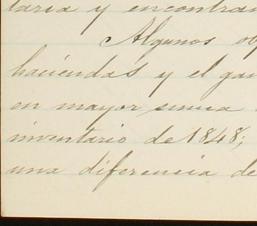 taria y encontran
Algunos ob
haciendas y el gan
en mayor
inventario de 1848;
una diferencia de